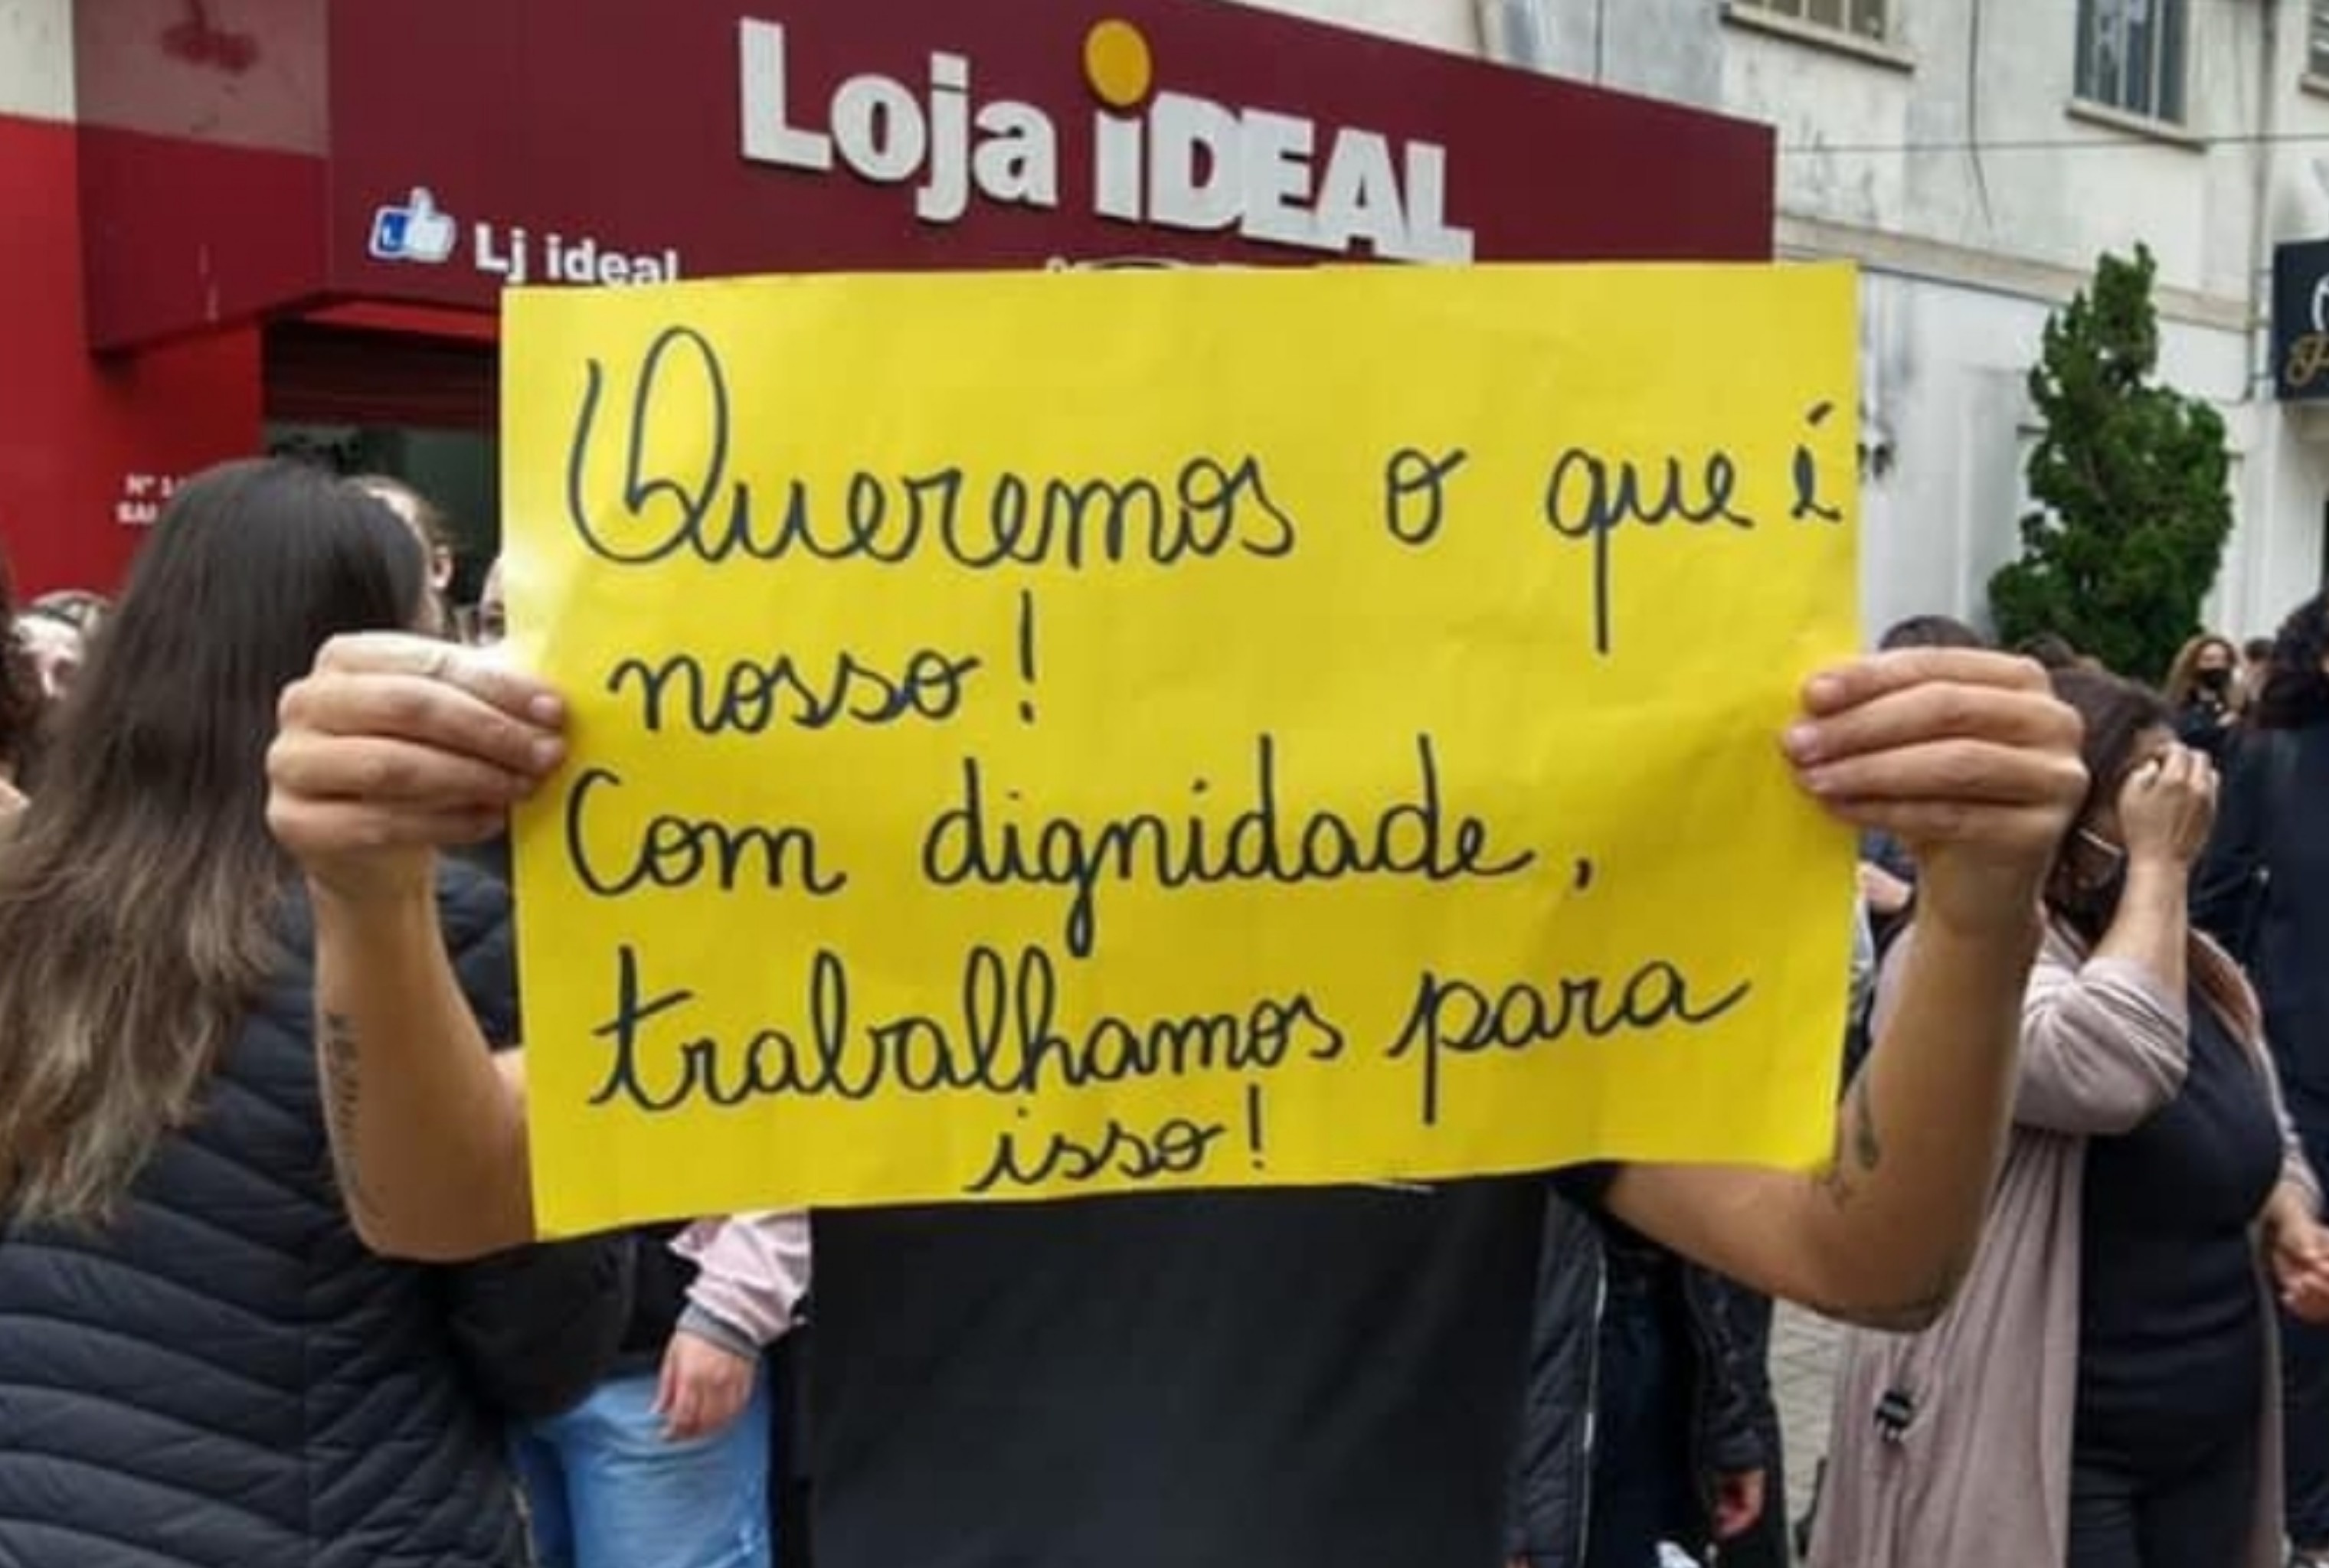 Loja iDEAL
Lj ideal
Queremos o que é
nosso!
Com dignidade,
trabalhamos para
isso!